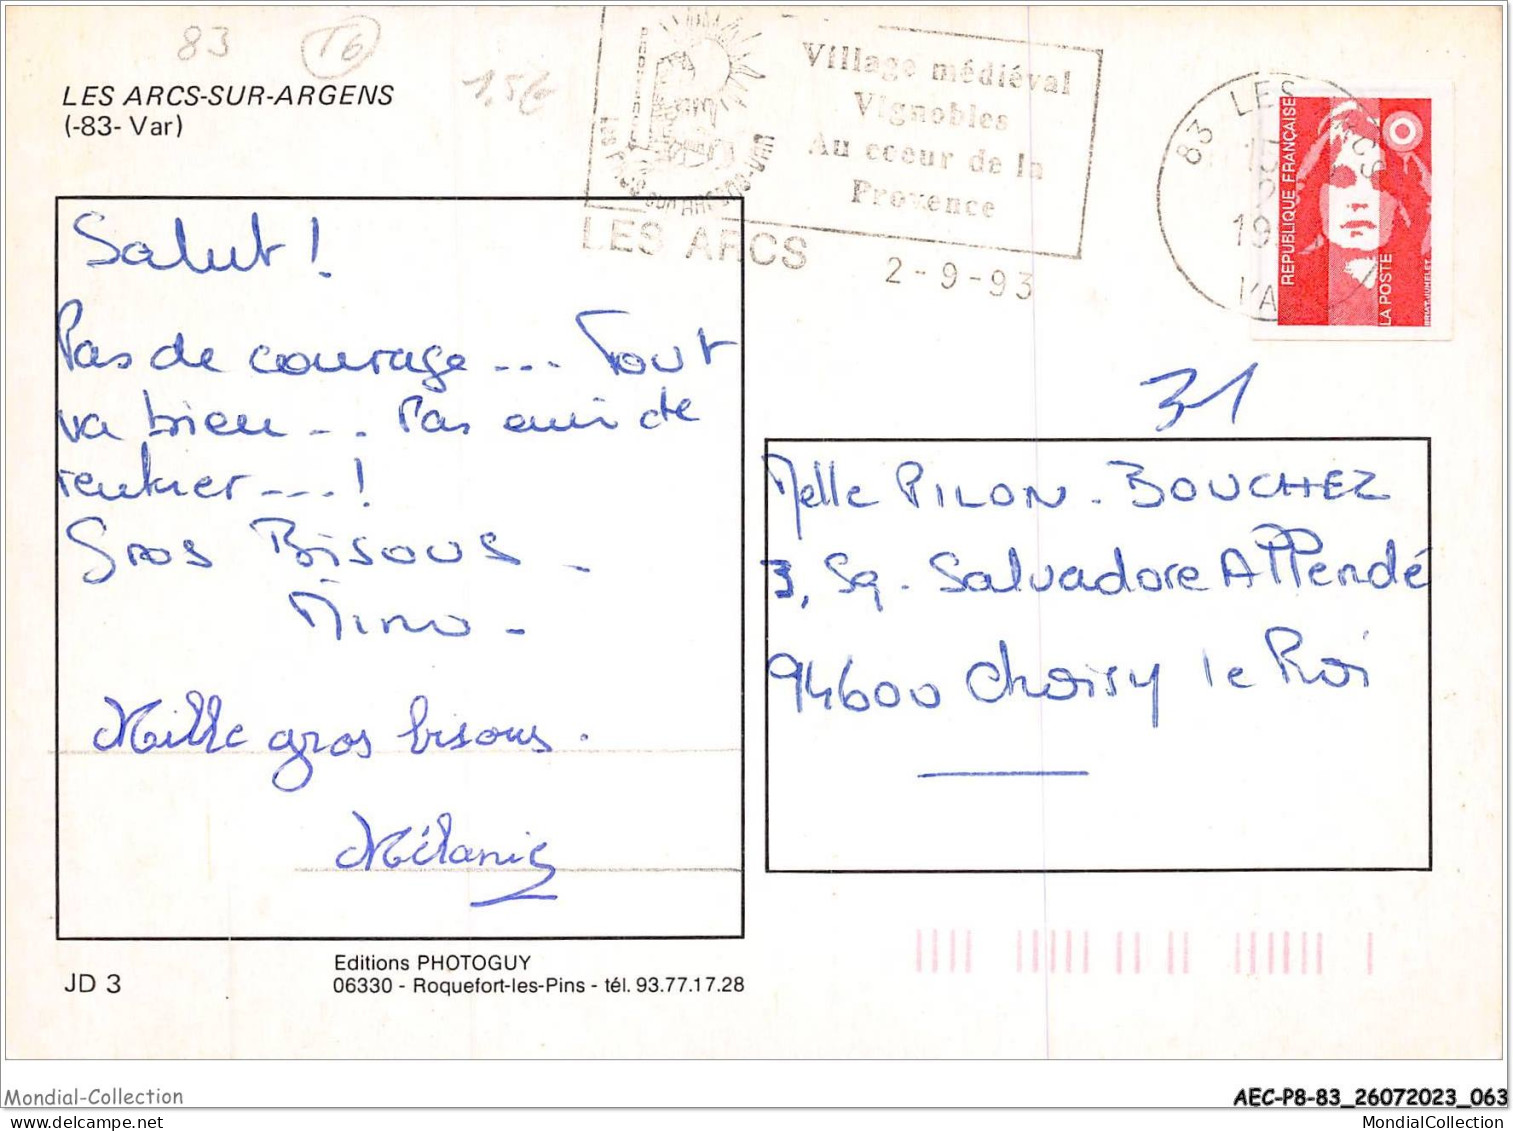 83 T6
1,5€
LES ARCS-SUR-ARGENS
(-83- Var)
Village médiéval
Vignobles
Au coeur de la
Provence
LES ARCS
2-9-93
83 LES ARCS
15
19
VA
REPUBLIQUE FRANÇAISE
LA POSTE
Salut !
Pas de courage --- Tout
va bien --. Pas envie de
rentrer ---!
Gros Bisous -
Mino -
Mille gros bisous.
Mélanie
31
Melle PILON - BOUCHEZ
3, Sq. Salvadore Allendé
94600 Choisy le Roi
JD 3
Editions PHOTOGUY
06330 - Roquefort-les-Pins - tél. 93.77.17.28
Mondial-Collection
AEC-P8-83_26072023_063
MondialCollection.txt
MondialCollection